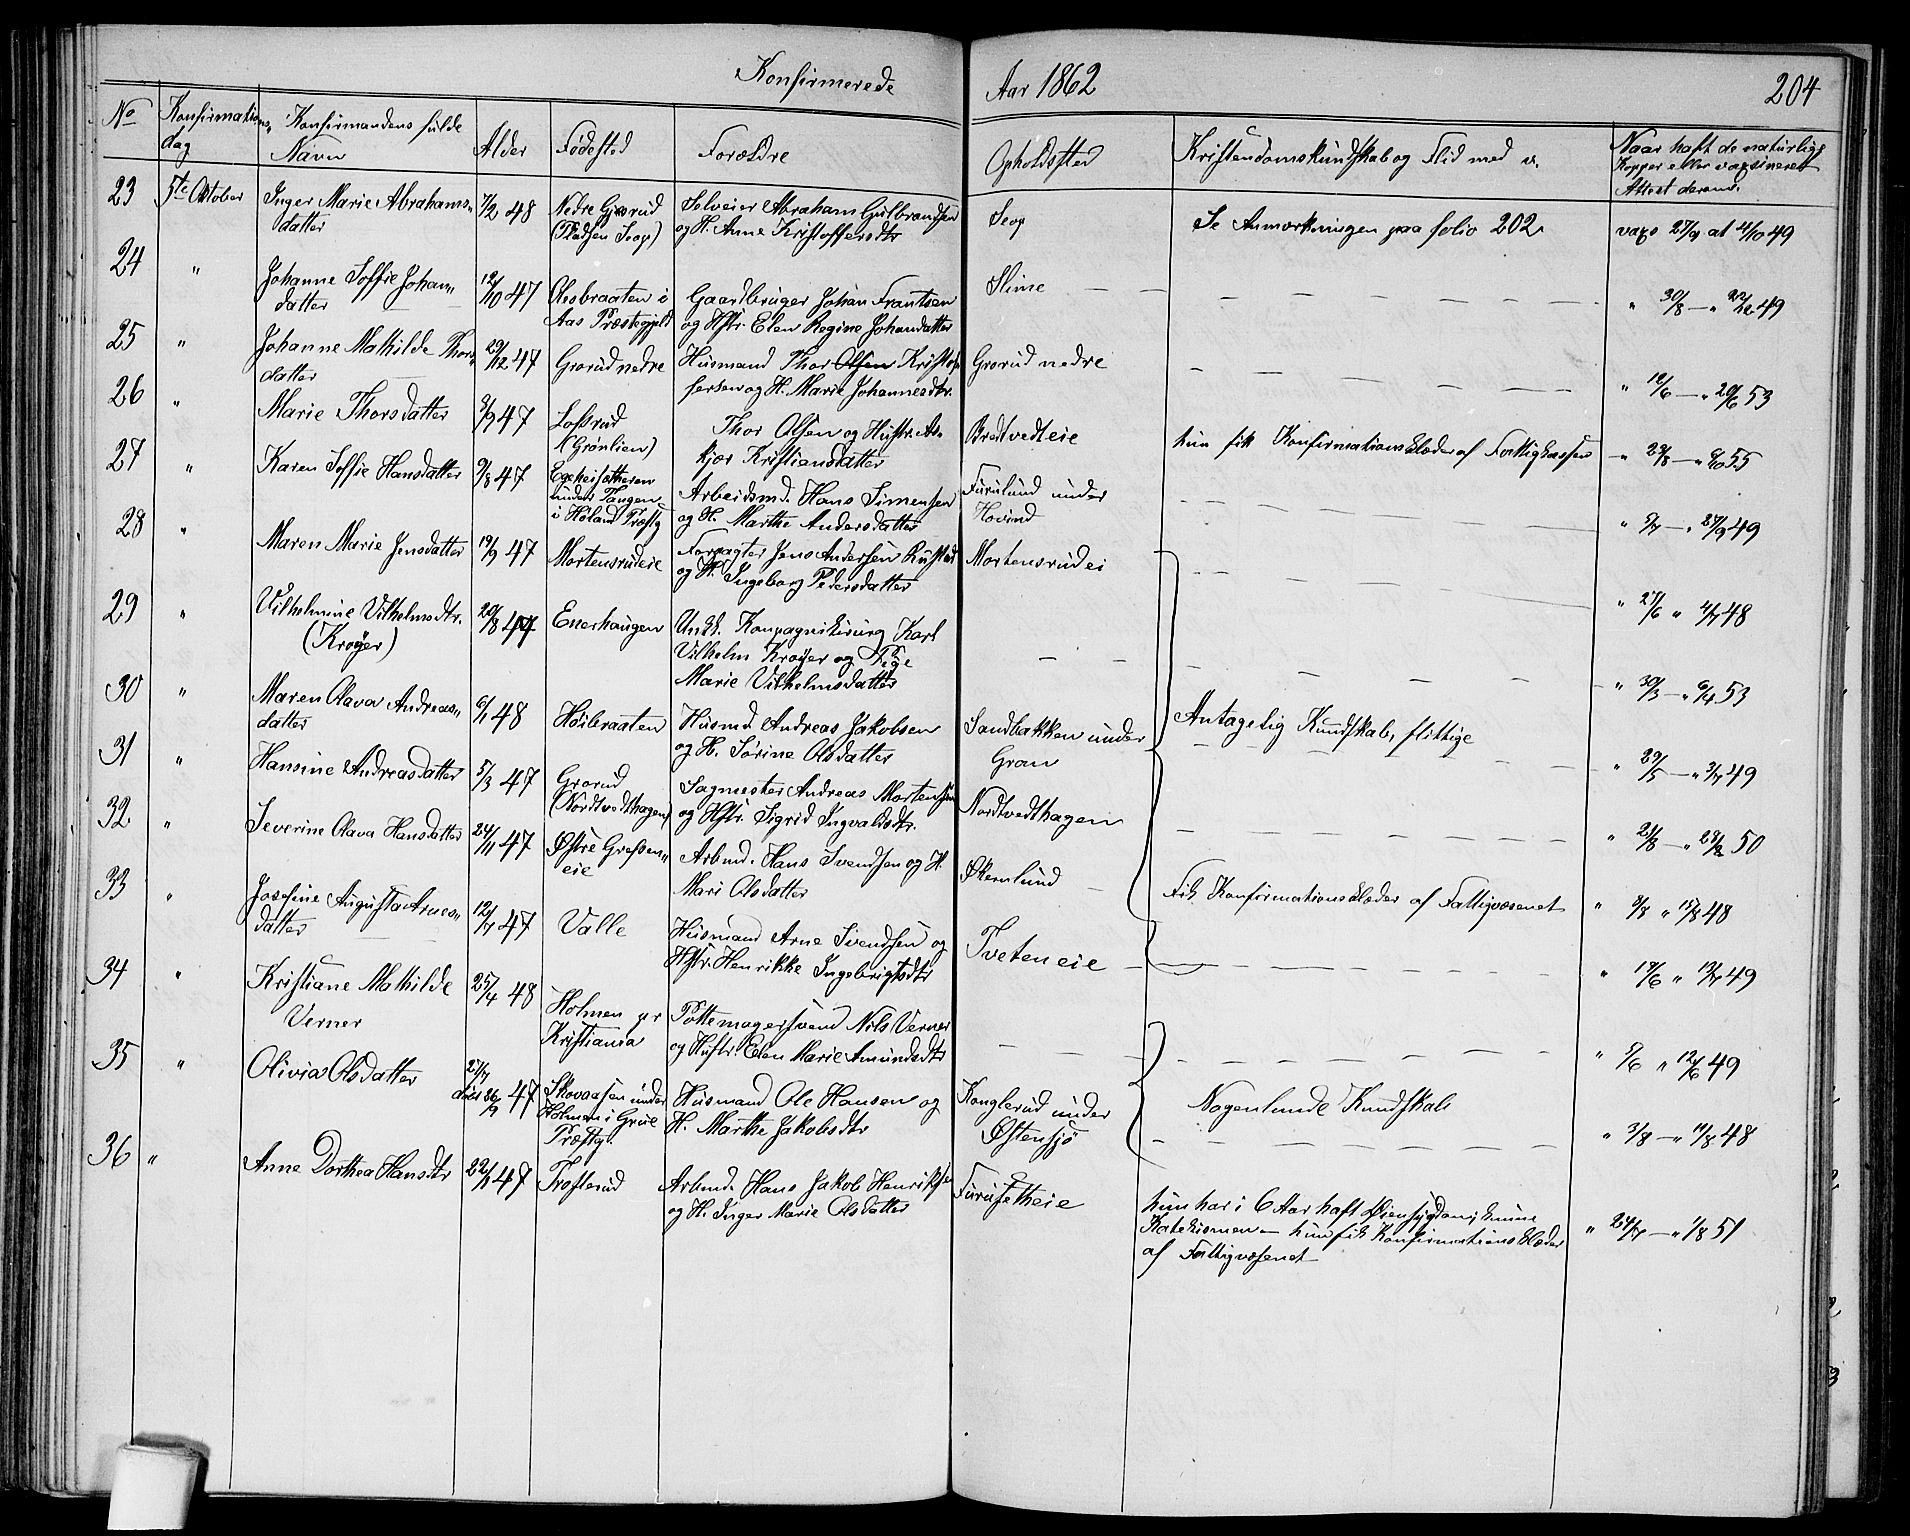 Konfirmerede Aar 1862 204
No Konfirmations„ dag Konfirmandens fulde Navn Alder Fødested Forældre Opholdssted Kristendomskundskab og Flid med v. Naar haft de naturlige Kopper eller vaxsineret Attest derom.
23 5te Oktober Inger Marie Abrahams„ 7/2 48 Nedre Grorud Selveier Abraham Gulbrandsen
datter (Pladsen Seop) og H. Anne Kristoffersdtr Seop Se Anmærkningen paa folio 202 vaxs 27/9 at 4/10 49
24 " Johanne Soffie Johan„ 12/10 47 Gaardbruger Johan Frantsen Slime — — — " 30/8 — "
datter Aas Præstegjeld og Hstr. Elen Regine Johansdatter
25 " Johanne Mathilde Thors„ 29/12 47 Grorud nedre Husmand Thor Olsen Kristof Grorud nedre
datter fersen og H. Marie Johannesdtr. — — — " — " 53
26 " Marie Thorsdatter 3/9 47 Lofsrud Thor Olsen og Hustr. As„ Bredtvedteie hun fik Konfirmationsklæder af Fattigkassen " 29/8 — " 55
(Grønlien) kjær Kristiansdatter
27 " Karen Soffie Hansdatter 9/8 47 Arbeidsmd. Hans Simensen Furulund under
under Tangen og H. Marthe Andersdatter Hovind — — — " — " 27/9 49
i Høland Præstg
28 " Maren Marie Jensdatter 19/9 47 Mortensrudeie Forpagter Jens Andersen Rustad Mortensrudei
og H. Ingeborg Pedersdatter — — — " 27/6 " 4/7 48
29 " Vilhelmine Vilhelmsdtr. 20/8 47 Enerhaugen Unkk. Kompagnikirurg Karl
(Krøyer) Vilhelm Krøyer og Pige — — — " 30/3 — " 6/4 53
Marie Vilhelmsdatter
30 " Maren Olava Andreas„ 6/1 48 Høibraaten Husmd. Andreas Jakobsen Sandbakken under Antagelig Kundskab, flittige
datter og H. Sørine Olsdatter Gran — — — " 29/5 — " 3/7 49
31 " Hansine Andreasdatter 5/3 47 Grorud Sagmester Andreas Mortensen Nordtvedthagen
(Nordtvedthagen) og Hstr. Sigrid Ingvaldsdtr. — — — " 21/8 — " 50
32 " Severine Olava Hansdatter 24/11 47 Østre Grefsen„ Arbmd. Hans Svendsen og H. Økernlund
eie Mari Olsdatter Fik Konfirmationsklæder af Fattigvæsenet " 9/8 " 48
33 " Josefine Augusta Arnes„ 12/7 47 Valle Husmand Arne Svendsen og Tveteneie
datter Hstr. Henrikke Ingebrigtsdtr — — — " 19/6 " 49
34 " Kristiane Mathilde 25/4 48 Holmen pr Pottemagersvend Nils Verner
Verner Kristiania og Hustr. Elen Marie Amundsdtr — — — " 5/6 " 12/6 49
35 " Olivia Olsdatter 27/7 47 Skovaasen under Husmand Ole Hansen og Konglerud under Nogenlunde Kundskab
døbt 26/9 Holmen i Grue H. Marthe Jakobsdtr Østensjø — — — " 3/8 — " 11/8 48
Præstg.
36 " Anne Dorthea Hansdtr 47 Trosterud Arbmd. Hans Jakob Henriksen Furusetheie hun har i 6 Aar haft Øiensygdom; kunne
og H. Inger Marie Olsdatter Katekismen — hun fik Konfirmationsklæder " 24/7 — " 1/8 51
af Fattigvæsenet